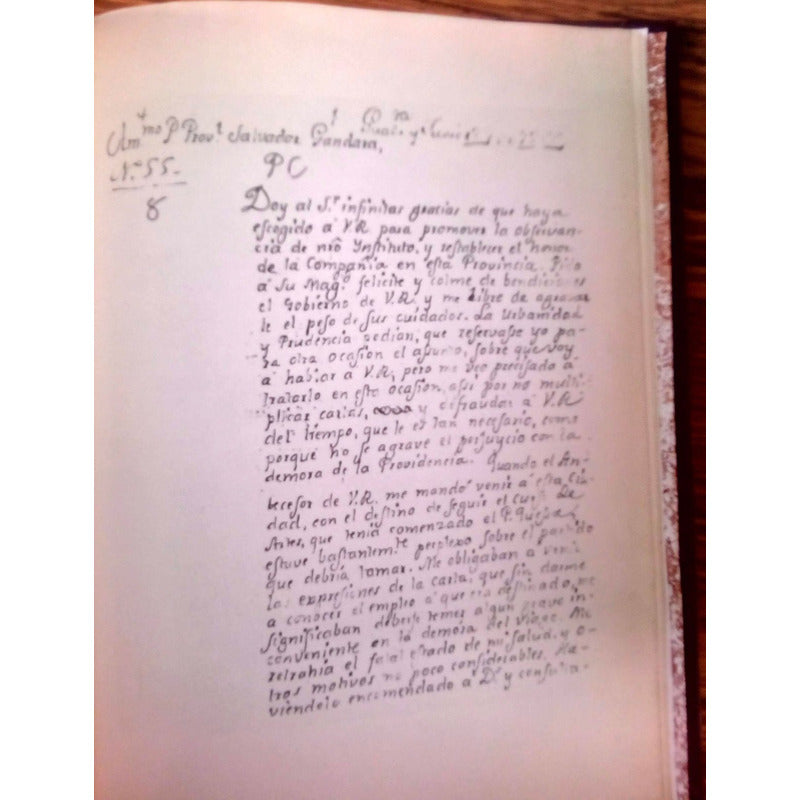 Am.mo P Prov.l Salvador Gandara,
N.o 55.
8
PC
Doy al S.r infinitas gracias de que haya
escogido a V.R para promover la observan-
cia de nrô Instituto, y restablecer el honor
de la Compañia en esta Provincia. Pido
a Su Mag.d felicite y colme de bendiciones
el Gobierno de V.R y me libre de agravar
le el peso de sus cuidados. La Urbanidad
y Prudencia pedian, que reservasse yo pa-
ra otra ocasion el assunto, sobre que voy
a hablar a V.R, pero me veo precisado a
tratarlo en esta ocasion, assi por no multi-
plicar cartas, y defraudar a V.R
del tiempo, que le es tan necesario, como
porque no se agrave el perjuycio con la
demora de la Providencia. Quando el An-
tecesor de V.R. me mandó venir a esta Ciu-
dad, con el destino de seguir el Curso de
Artes, que tenia comenzado el P.
estuve bastantem.te perplexo sobre el partido
que debria tomar. Me obligaban a venir
las expresiones de la carta, que sin darme
a conocer el empleo a que era destinado, me
significaban deberse temer algun grave in-
conveniente en la demora del Viage. Me
retrahia el fatal estado de mi salud, y o-
tros motivos no poco considerables. Ha-
viendolo encomendado a D.s y consulta-